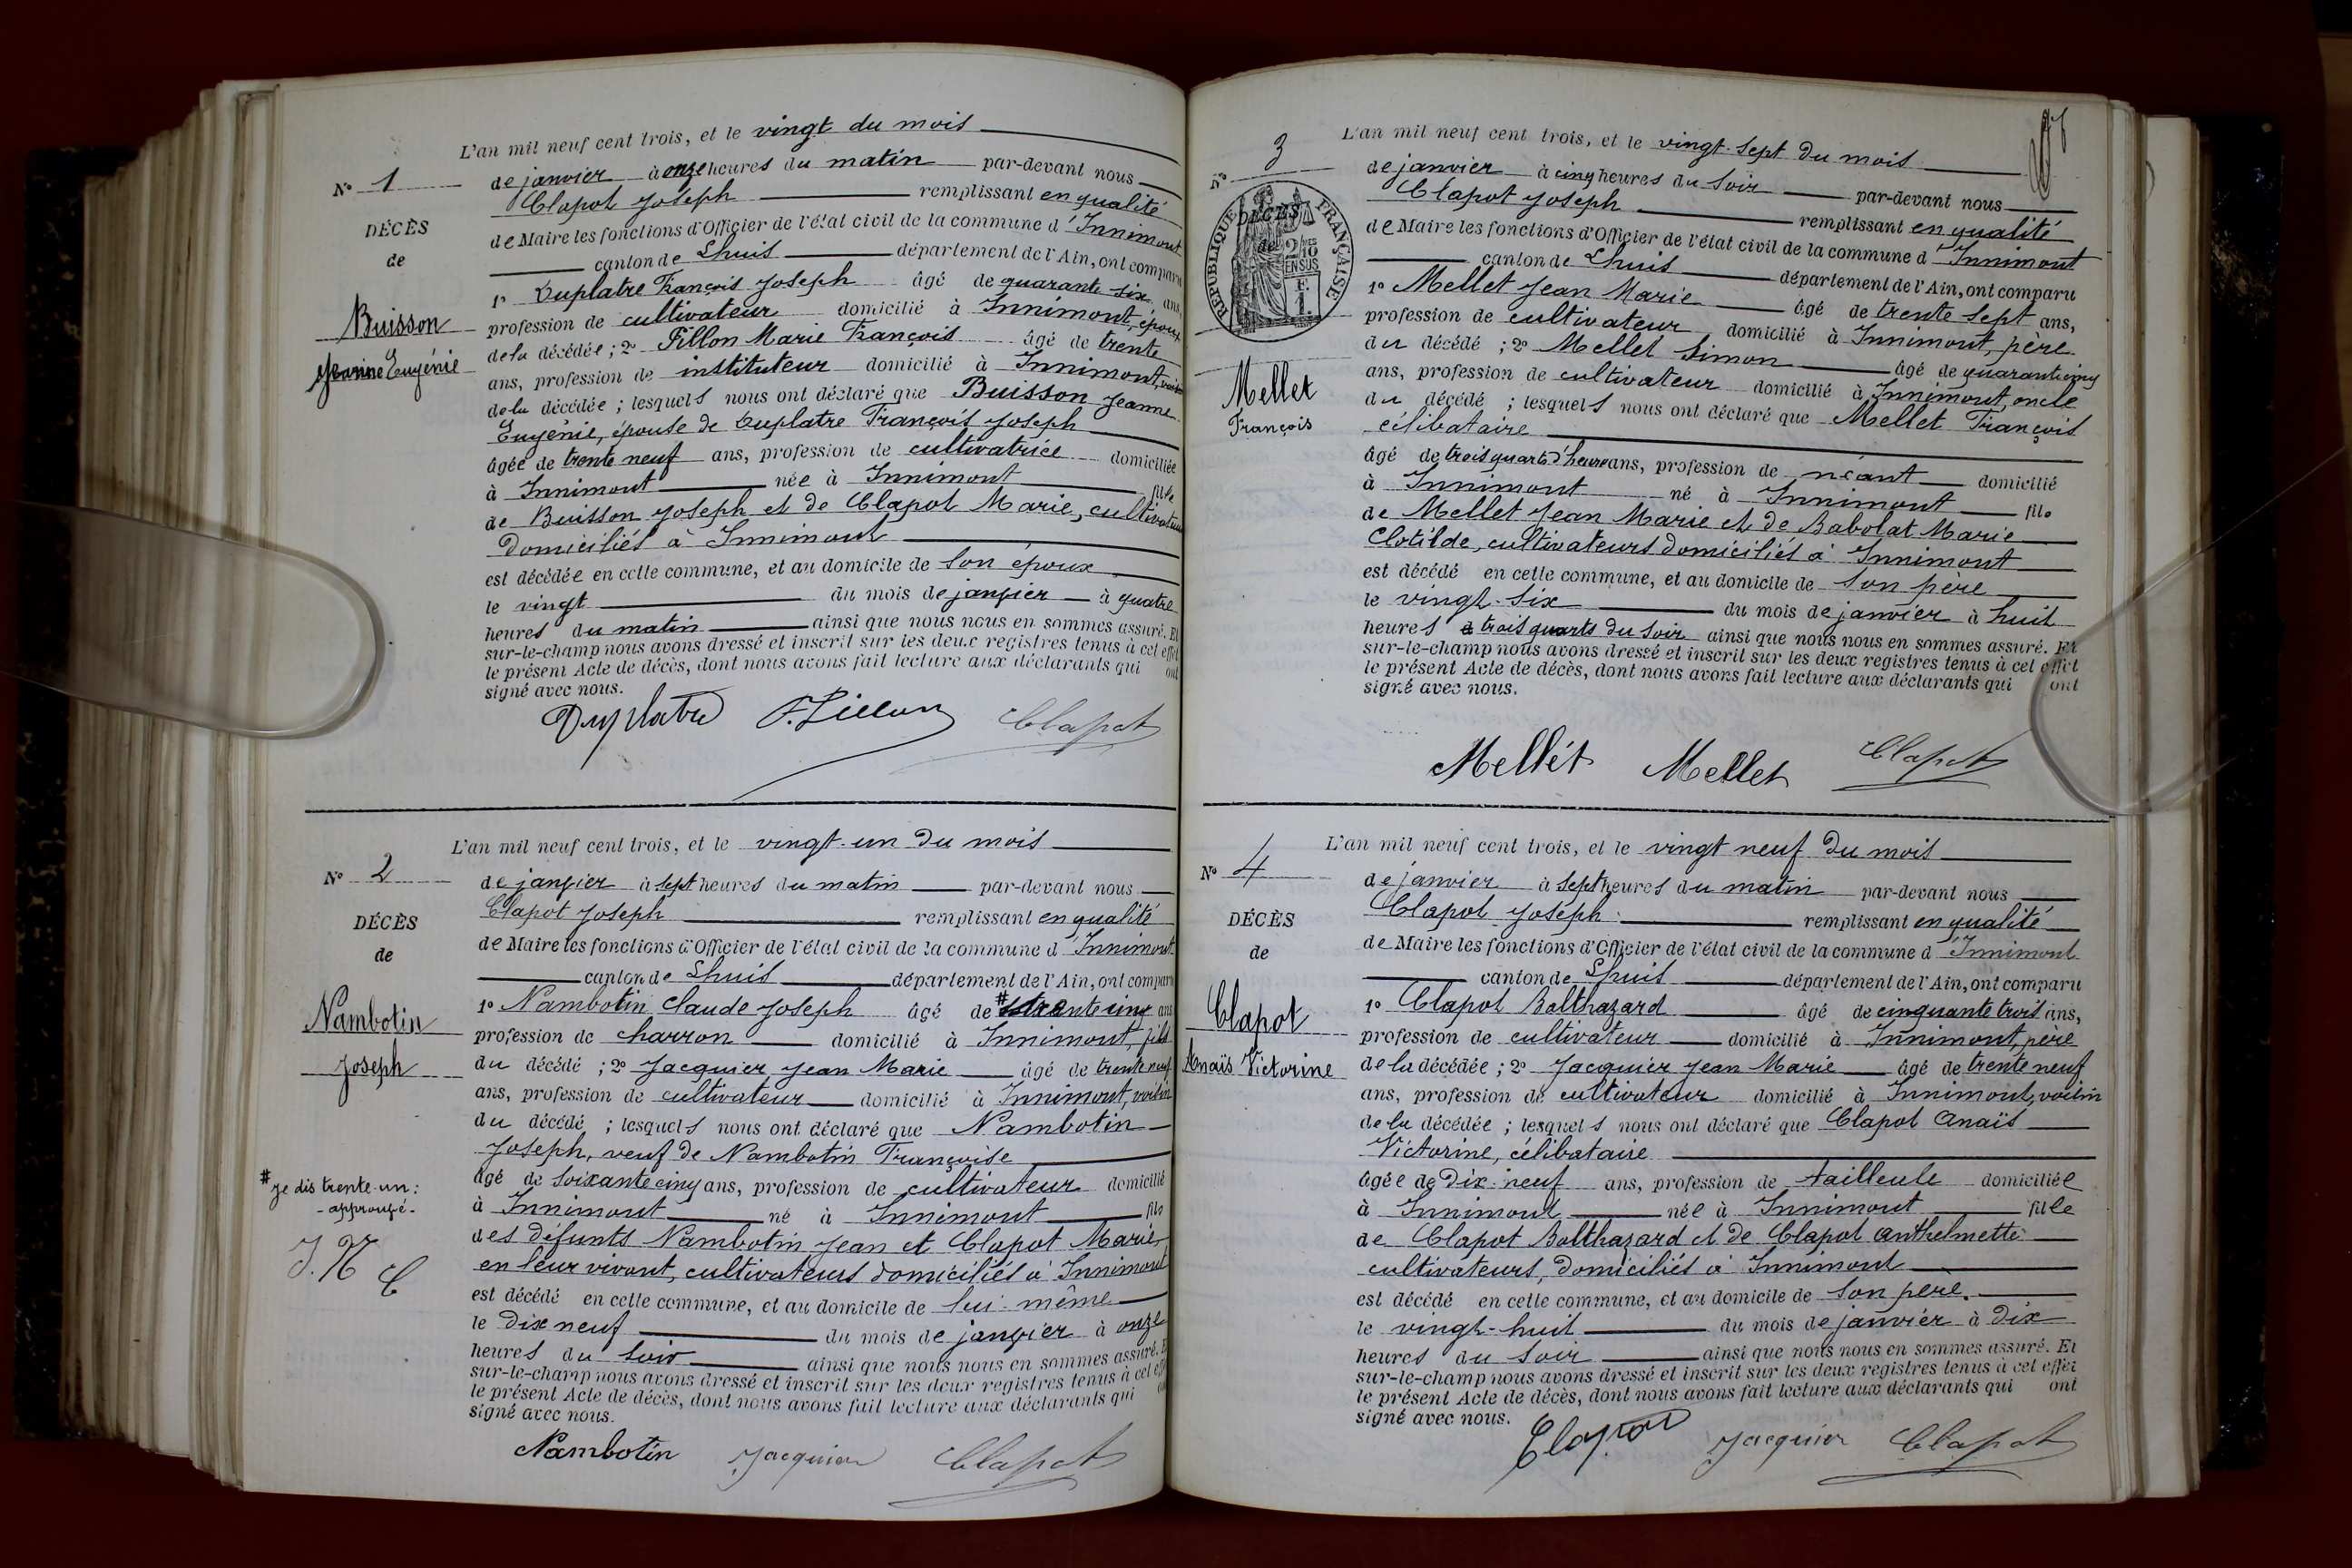 L'an mil neuf cent trois, et le vingt du mois
N° 1
de janvier à onze heures du matin par-devant nous
Clapot Joseph remplissant en qualité
DÉCÈS
de Maire les fonctions d'Officier de l'état civil de la commune d'Innimont
de
canton de Lhuis département de l'Ain, ont comparu
1° Duplatre François Joseph âgé de quarante six ans,
Buisson
profession de cultivateur domicilié à Innimont, époux
de la décédée ; 2° Fillon Marie François âgé de trente
Jeanne Eugénie
ans, profession de instituteur domicilié à Innimont, voisin
de la décédée ; lesquels nous ont déclaré que Buisson Jeanne
Eugénie, épouse de Duplatre François Joseph
âgée de trente neuf ans, profession de cultivatrice domiciliée
à Innimont née à Innimont fille
de Buisson Joseph et de Clapot Marie, cultivateurs
domiciliés à Innimont
est décédée en cette commune, et au domicile de son époux
le vingt du mois de janvier à quatre
heures du matin ainsi que nous nous en sommes assuré. Et
sur-le-champ nous avons dressé et inscrit sur les deux registres tenus à cet effet
le présent Acte de décès, dont nous avons fait lecture aux déclarants qui ont
signé avec nous.
Duplatre F. Fillon Clapot
L'an mil neuf cent trois, et le vingt-un du mois
N° 2
de janvier à sept heures du matin par-devant nous
Clapot Joseph remplissant en qualité
DÉCÈS
de Maire les fonctions d'Officier de l'état civil de la commune d'Innimont
de
canton de Lhuis département de l'Ain, ont comparu
1° Nambotin Claude Joseph âgé de # trente cinq ans
Nambotin
profession de charron domicilié à Innimont, fils
Joseph
du décédé ; 2° Jacquier Jean Marie âgé de trente neuf
ans, profession de cultivateur domicilié à Innimont, voisin
du décédé ; lesquels nous ont déclaré que Nambotin
Joseph, veuf de Nambotin Françoise
âgé de soixante cinq ans, profession de cultivateur domicilié
# je dis trente-un :
- approuvé -
à Innimont né à Innimont fils
des défunts Nambotin Jean et Clapot Marie,
J. N C
en leur vivant, cultivateurs domiciliés à Innimont
est décédé en cette commune, et au domicile de lui-même
le dix neuf du mois de janvier à onze
heures du soir ainsi que nous nous en sommes assuré. Et
sur-le-champ nous avons dressé et inscrit sur les deux registres tenus à cet effet
le présent Acte de décès, dont nous avons fait lecture aux déclarants qui ont
signé avec nous.
Nambotin Jacquier Clapot
L'an mil neuf cent trois, et le vingt-sept du mois
N° 3
de janvier à cinq heures du soir par-devant nous
Clapot Joseph remplissant en qualité
RÉPUBLIQUE FRANÇAISE
DÉCÈS
de
2/10
EN SUS
F.
1.
de Maire les fonctions d'Officier de l'état civil de la commune d'Innimont
canton de Lhuis département de l'Ain, ont comparu
1° Mellet Jean Marie âgé de trente sept ans,
profession de cultivateur domicilié à Innimont, père
du décédé ; 2° Mellet Simon âgé de quarante cinq
Mellet
ans, profession de cultivateur domicilié à Innimont, oncle
François
du décédé ; lesquels nous ont déclaré que Mellet François
célibataire
âgé de trois quarts d'heure ans, profession de néant domicilié
à Innimont né à Innimont fils
de Mellet Jean Marie et de Babolat Marie
Clotilde, cultivateurs domiciliés à Innimont
est décédé en cette commune, et au domicile de son père
le vingt-six du mois de janvier à huit
heures trois quarts du soir ainsi que nous nous en sommes assuré. Et
sur-le-champ nous avons dressé et inscrit sur les deux registres tenus à cet effet
le présent Acte de décès, dont nous avons fait lecture aux déclarants qui ont
signé avec nous.
Mellét Mellet Clapot
L'an mil neuf cent trois, et le vingt neuf du mois
N° 4
de janvier à sept heures du matin par-devant nous
Clapot Joseph remplissant en qualité
DÉCÈS
de Maire les fonctions d'Officier de l'état civil de la commune d'Innimont
de
canton de Lhuis département de l'Ain, ont comparu
1° Clapot Balthazard âgé de cinquante trois ans,
Clapot
profession de cultivateur domicilié à Innimont, père
Anaïs Victorine
de la décédée ; 2° Jacquier Jean Marie âgé de trente neuf
ans, profession de cultivateur domicilié à Innimont, voisin
de la décédée ; lesquels nous ont déclaré que Clapot Anaïs
Victorine, célibataire
âgée de dix-neuf ans, profession de tailleuse domiciliée
à Innimont née à Innimont fille
de Clapot Balthazard et de Clapot Anthelmette
cultivateurs, domiciliés à Innimont
est décédé en cette commune, et au domicile de son père.
le vingt-huit du mois de janvier à dix
heures du soir ainsi que nous nous en sommes assuré. Et
sur-le-champ nous avons dressé et inscrit sur les deux registres tenus à cet effet
le présent Acte de décès, dont nous avons fait lecture aux déclarants qui ont
signé avec nous.
Clapot Jacquier Clapot